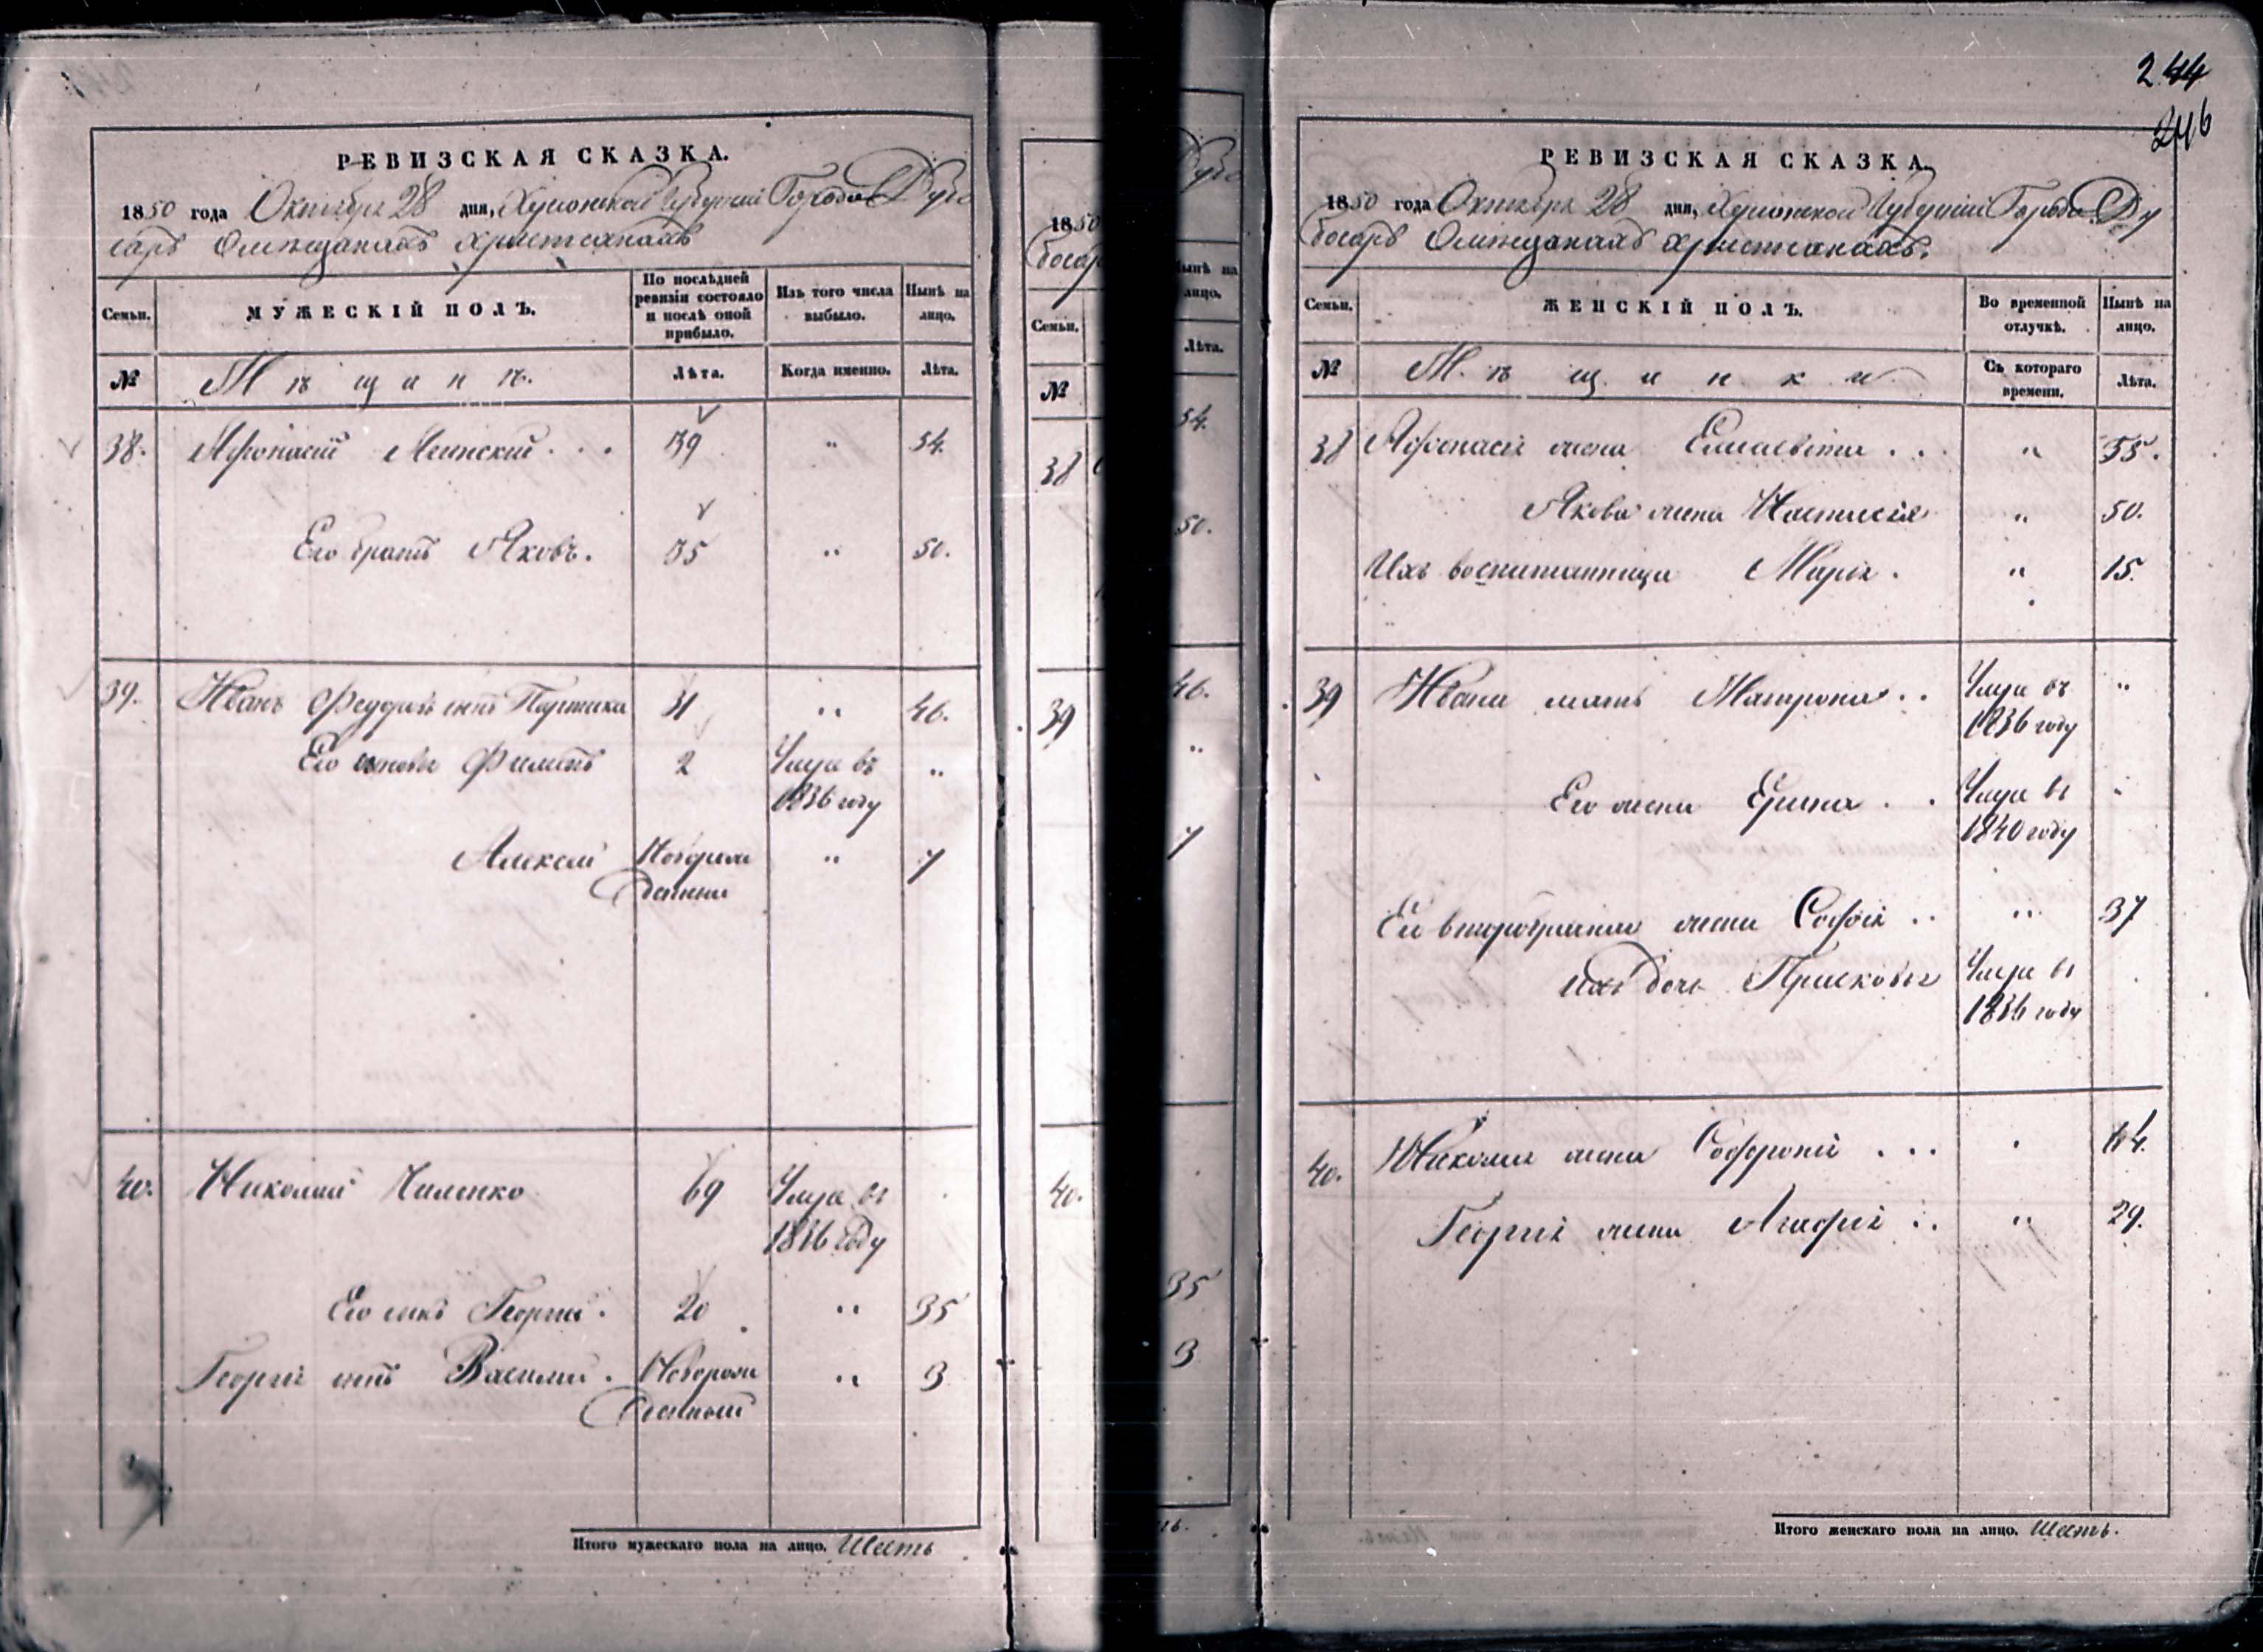 РЕВИЗСКАЯ СКАЗКА.
1850 года Октября 28 дня, Херсонской Губерніи Города Дубо
саръ Омѣщанахъ христіанахъ
Семьи. МУЖЕСКІЙ ПОЛЪ. По послѣдней ревизіи состояло и послѣ оной прибыло. Изъ того числа выбыло. Нынѣ на лицо.
№ Мѣщанѣ. Лѣта. Когда именно. Лѣта.
38. Афонасій 39 " 54.
Его братъ Яковъ. 35 " 50.
39. Иванъ Федоровъ сынъ Партика 31 " 46.
Его сыновья Филипъ 2 Умре въ "
1836 году
Алексей Новорож " 7
денный
40. Николай 69 Умре въ
1846 году
Его сынъ Георгій. 20 " 35
Георгія сынъ Василий. Новорож " 3
денный
Итого мужескаго пола на лицо. Шесть
1850
босар
Семьи.
№
38
39
40.
Дубо
Нынѣ на
лицо.
Лѣта.
54.
50.
46.
"
7
35
3
244
246
РЕВИЗСКАЯ СКАЗКА.
1850 года Октября 28 дня, Херсонской Губерніи Города Ду
босаръ Омѣщанахъ христіанахъ.
Семьи. ЖЕНСКІЙ ПОЛЪ. Во временной отлучкѣ. Нынѣ на лицо.
№ Мѣщанки Съ котораго времени. Лѣта.
38 Афонасія жена Елисавета . . " 55.
Якова жена Настасія " 50.
Ихъ воспитанница Марія . " 15.
39 Ивана мать Матрона . . Умре въ "
1836 году
Его жена Ерина . . Умре въ "
1840 году
Его второбрачная жена Софія . . " 37
ихъ дочь Прасковья Умре въ
1836 году
40. Николая жена Софронія . . . " 64.
Георгія жена Агафія . . " 29.
Итого женскаго пола на лицо. Шесть.